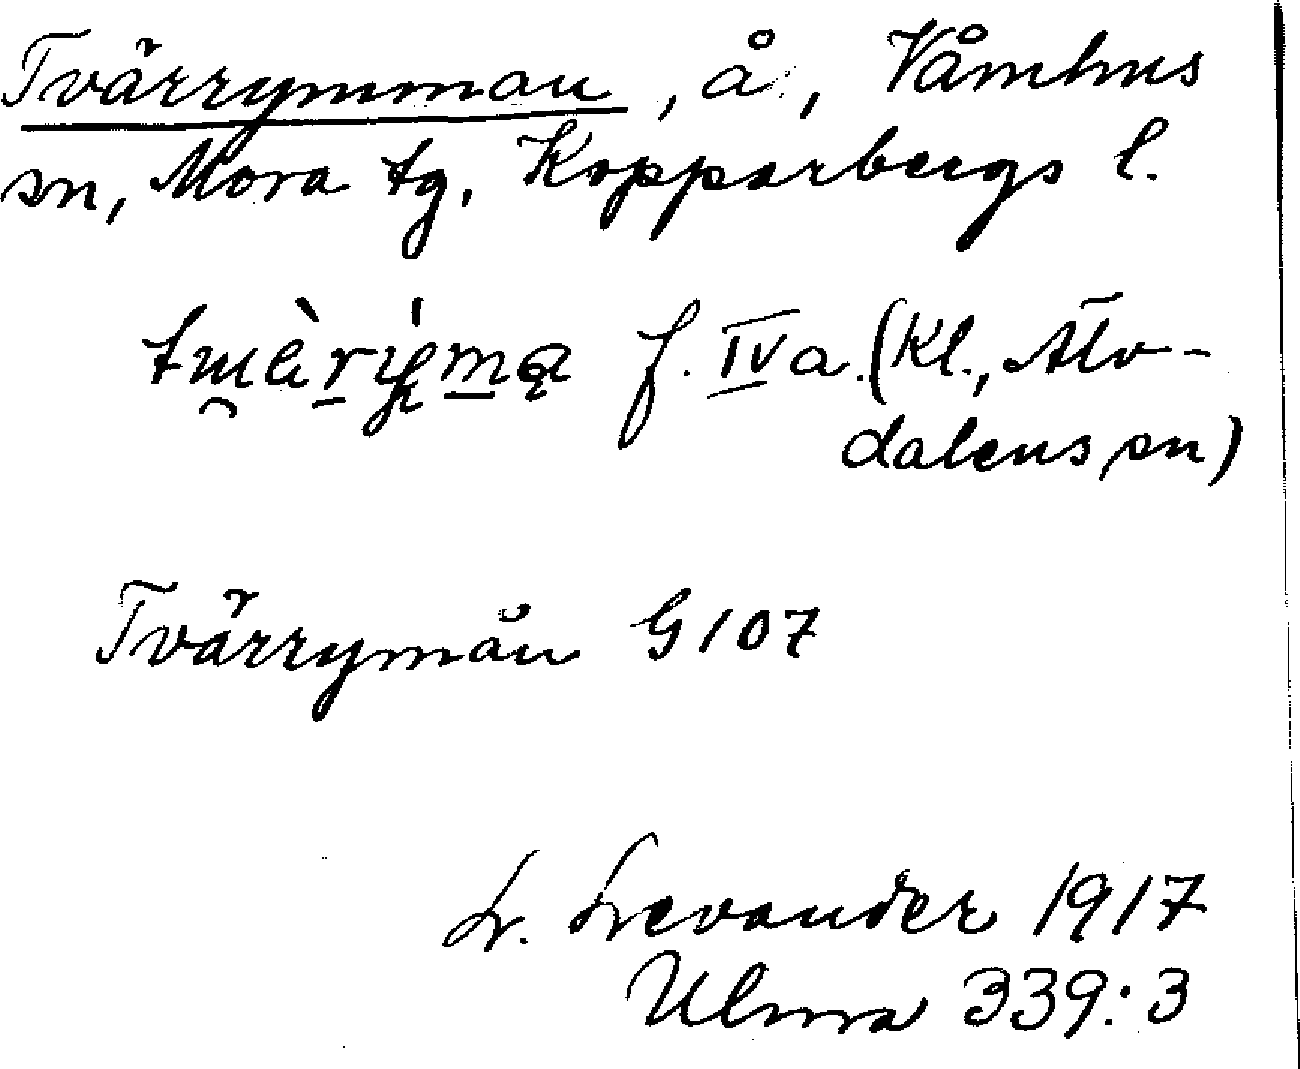 Tvärrymman, å, Våmhus
sn, Mora tg. Kopparbergs l.
f. IVa. (Kl., Älv-
dalens sn)
Tvärrymån G 107
L. Levander 1917
Ulma 339:3